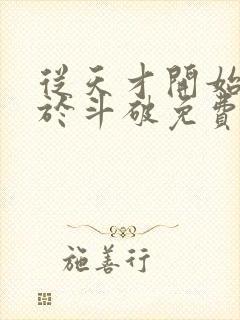 從天才開始
於斗破免費
施善行